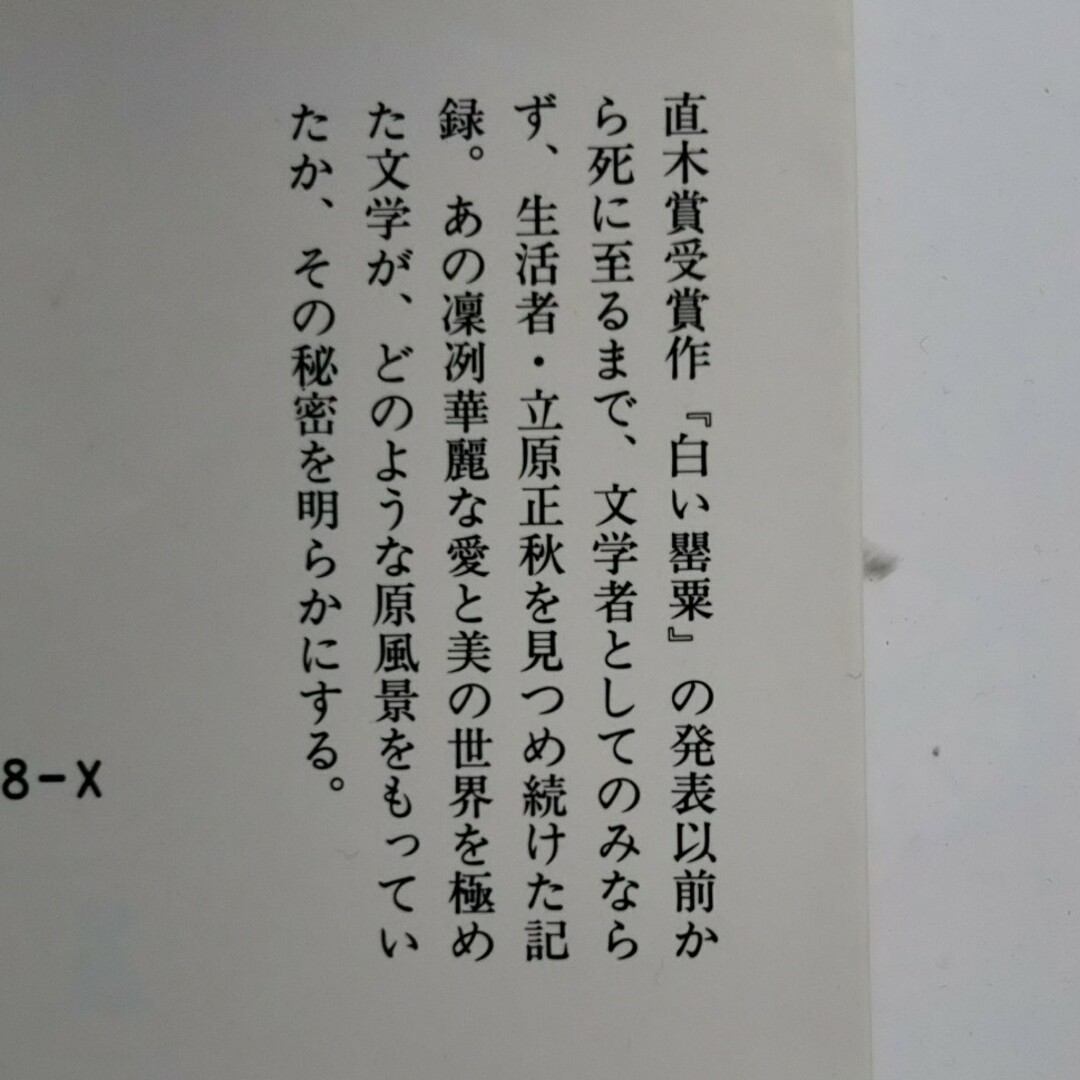 直木賞受賞作『白い罌粟』の発表以前か
ら死に至るまで、文学者としてのみなら
ず、生活者・立原正秋を見つめ続けた記
録。あの凜冽華麗な愛と美の世界を極め
た文学が、どのような原風景をもってい
たか、その秘密を明らかにする。
8-X